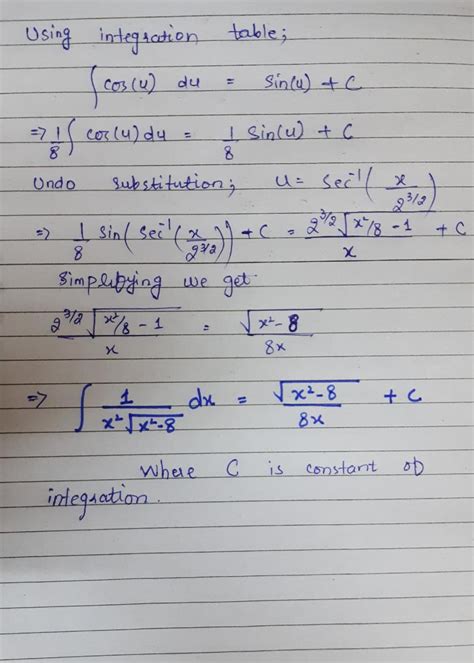 Using integration table;
∫ cos(u) du = sin(u) + C
=> 1/8 ∫ cos(u) du = 1/8 sin(u) + C
Undo substitution; u = sec⁻¹(x/2^(3/2))
=> 1/8 sin(sec⁻¹(x/2^(3/2))) + C = 2^(3/2) √(x²/8 - 1) / x + C
Simplifying we get
2^(3/2) √(x²/8 - 1) / x = √(x² - 8) / 8x
=> ∫ 1/(x² √(x²-8)) dx = √(x²-8) / 8x + C
Where C is constant of
integration.